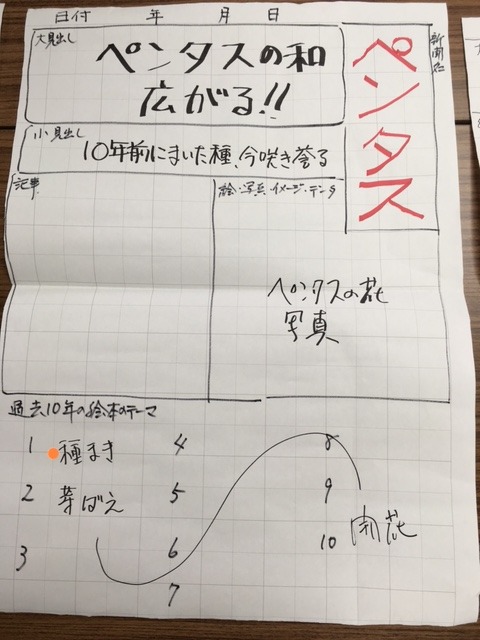 日付 年 月 日
新聞名
ペンタス
大見出し
ペンタスの和
広がる!!
小見出し
10年前にまいた種、今咲き誇る
記事
絵・写真・イメージ・データ
ペンタスの花
写真
過去10年の絵本のテーマ
1 種まき
2 芽ばえ
3
4
5
6
7
8
9
10 開花